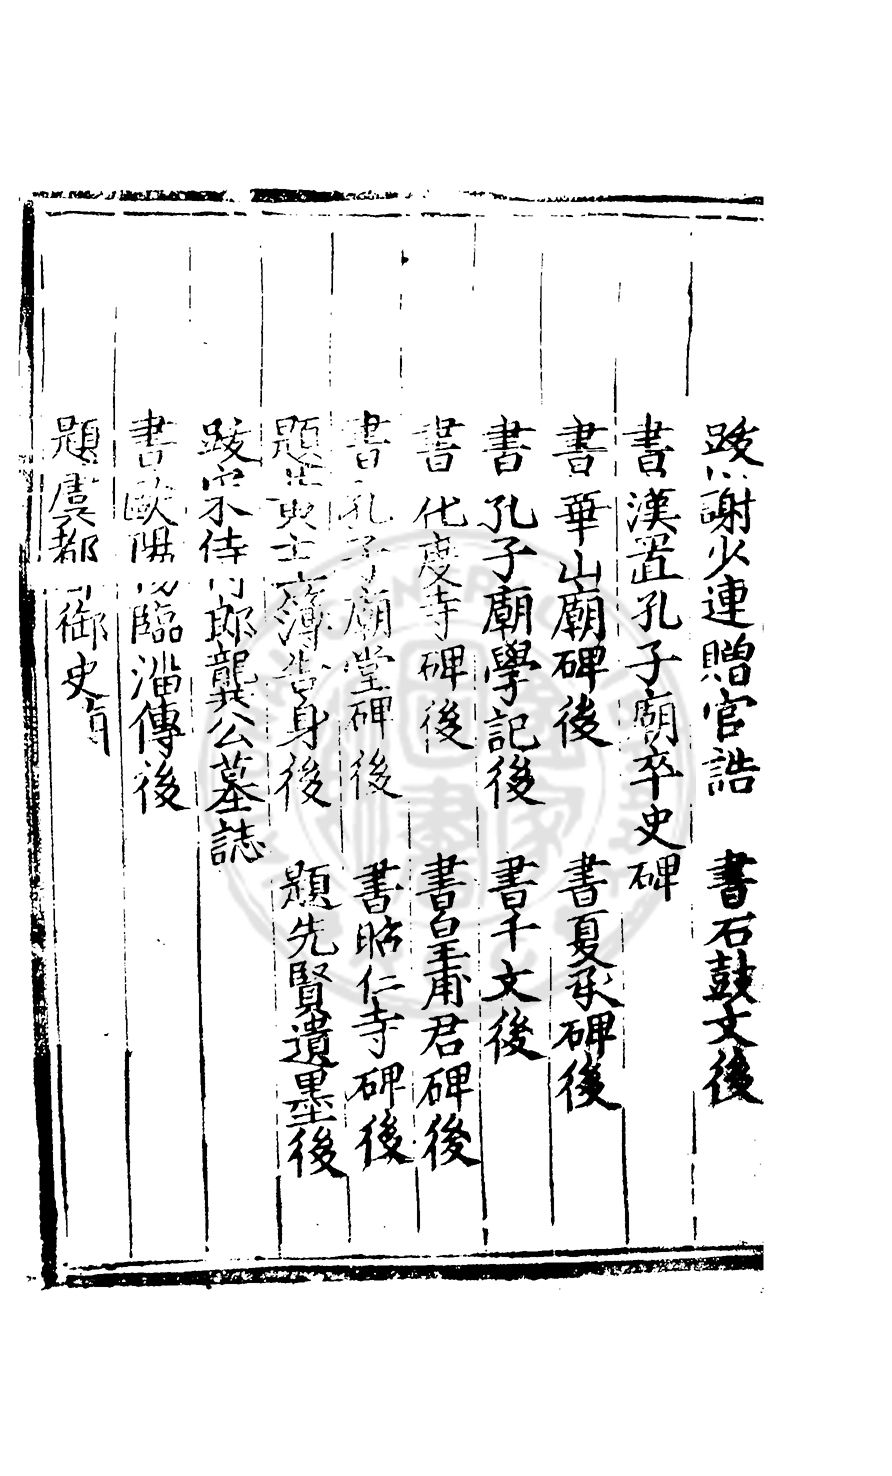 跋謝少連贈官誥　書石鼓文後
書漢置孔子廟卒史碑
書華山廟碑後　書夏承碑後
書孔子廟學記後　書千文後
書化度寺碑後　書皇甫君碑後
書孔子廟堂碑後　書昭仁寺碑後
題黃主簿告身後　題先賢遺墨後
跋宋侍郎龔公墓誌
書歐陽臨淄傳後
題虞都御史